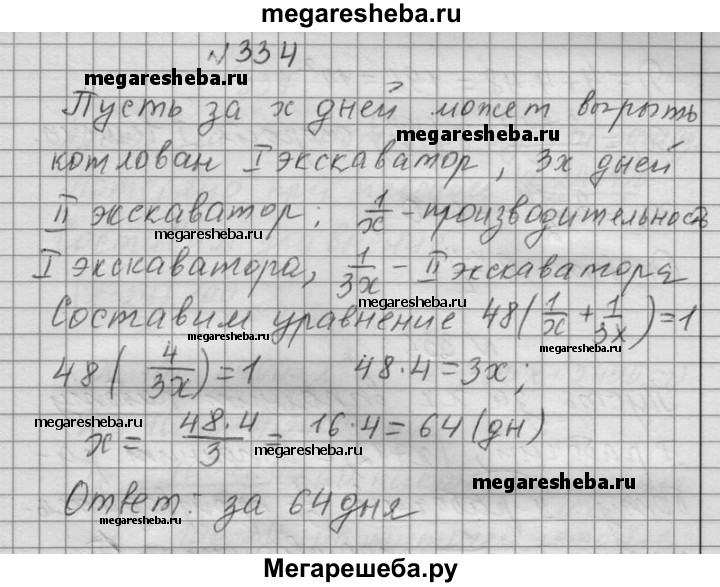 megaresheba.ru
№334
megaresheba.ru
Пусть за x дней может вырыть
megaresheba.ru
котлован I экскаватор, 3x дней
II экскаватор; 1/x - производительность
megaresheba.ru
I экскаватора, 1/3x - II экскаватора
megaresheba.ru
Составим уравнение 48(1/x + 1/3x) = 1
megaresheba.ru
megaresheba.ru
48(4/3x) = 1 48·4 = 3x;
megaresheba.ru
x = 48·4/3 = 16·4 = 64 (дн)
megaresheba.ru
megaresheba.ru
Ответ: за 64 дня
megaresheba.ru
Мегарешеба.ру